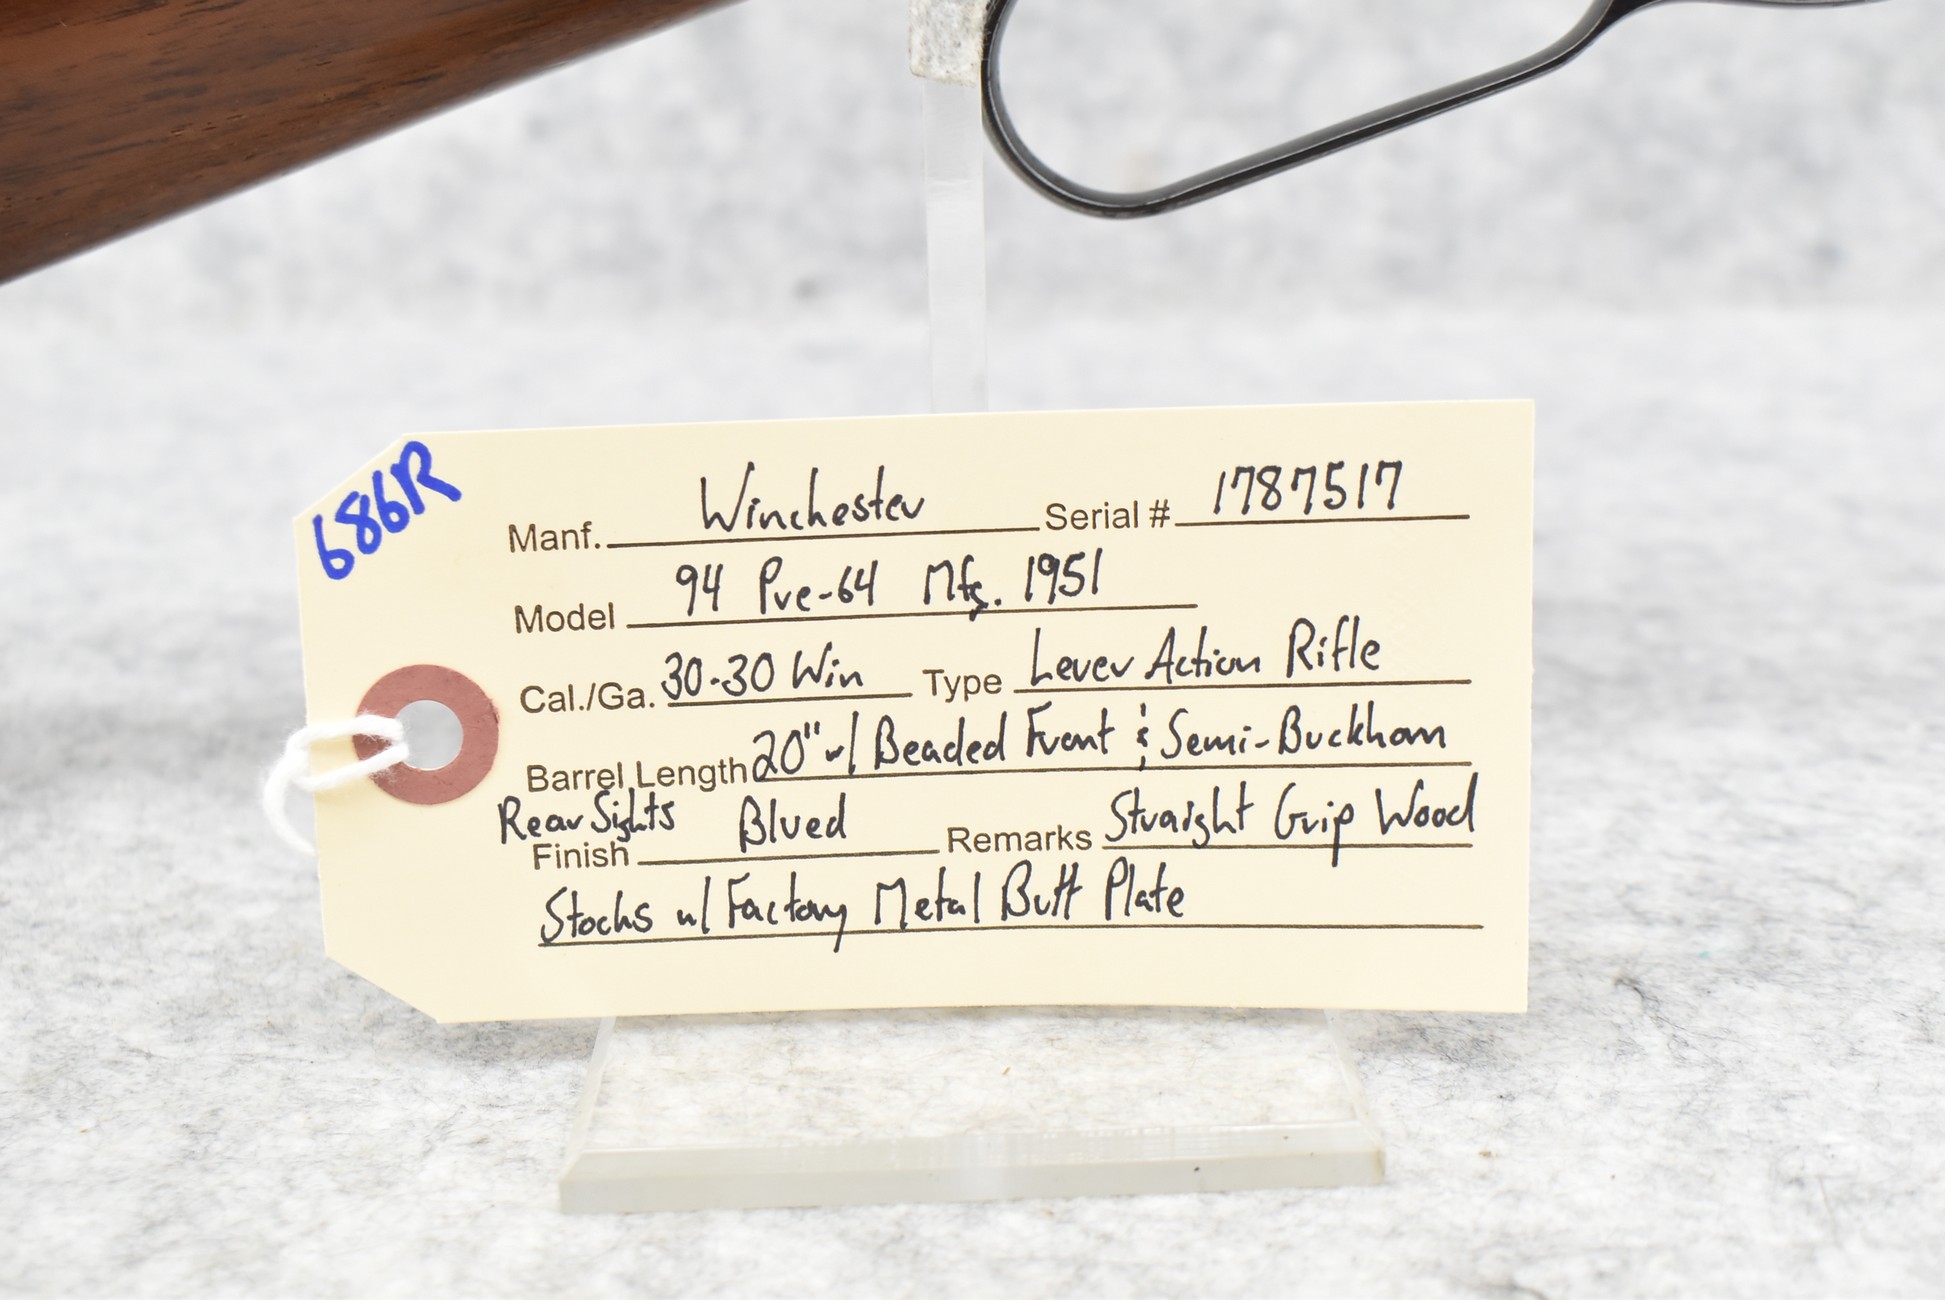 686R
Manf. Winchester Serial # 1787517
Model 94 Pre-64 Mfg. 1951
Cal./Ga. 30-30 Win Type Lever Action Rifle
Barrel Length 20" w/ Beaded Front & Semi-Buckhorn
Rear Sights
Finish Blued Remarks Straight Grip Wood
Stocks w/ Factory Metal Butt Plate